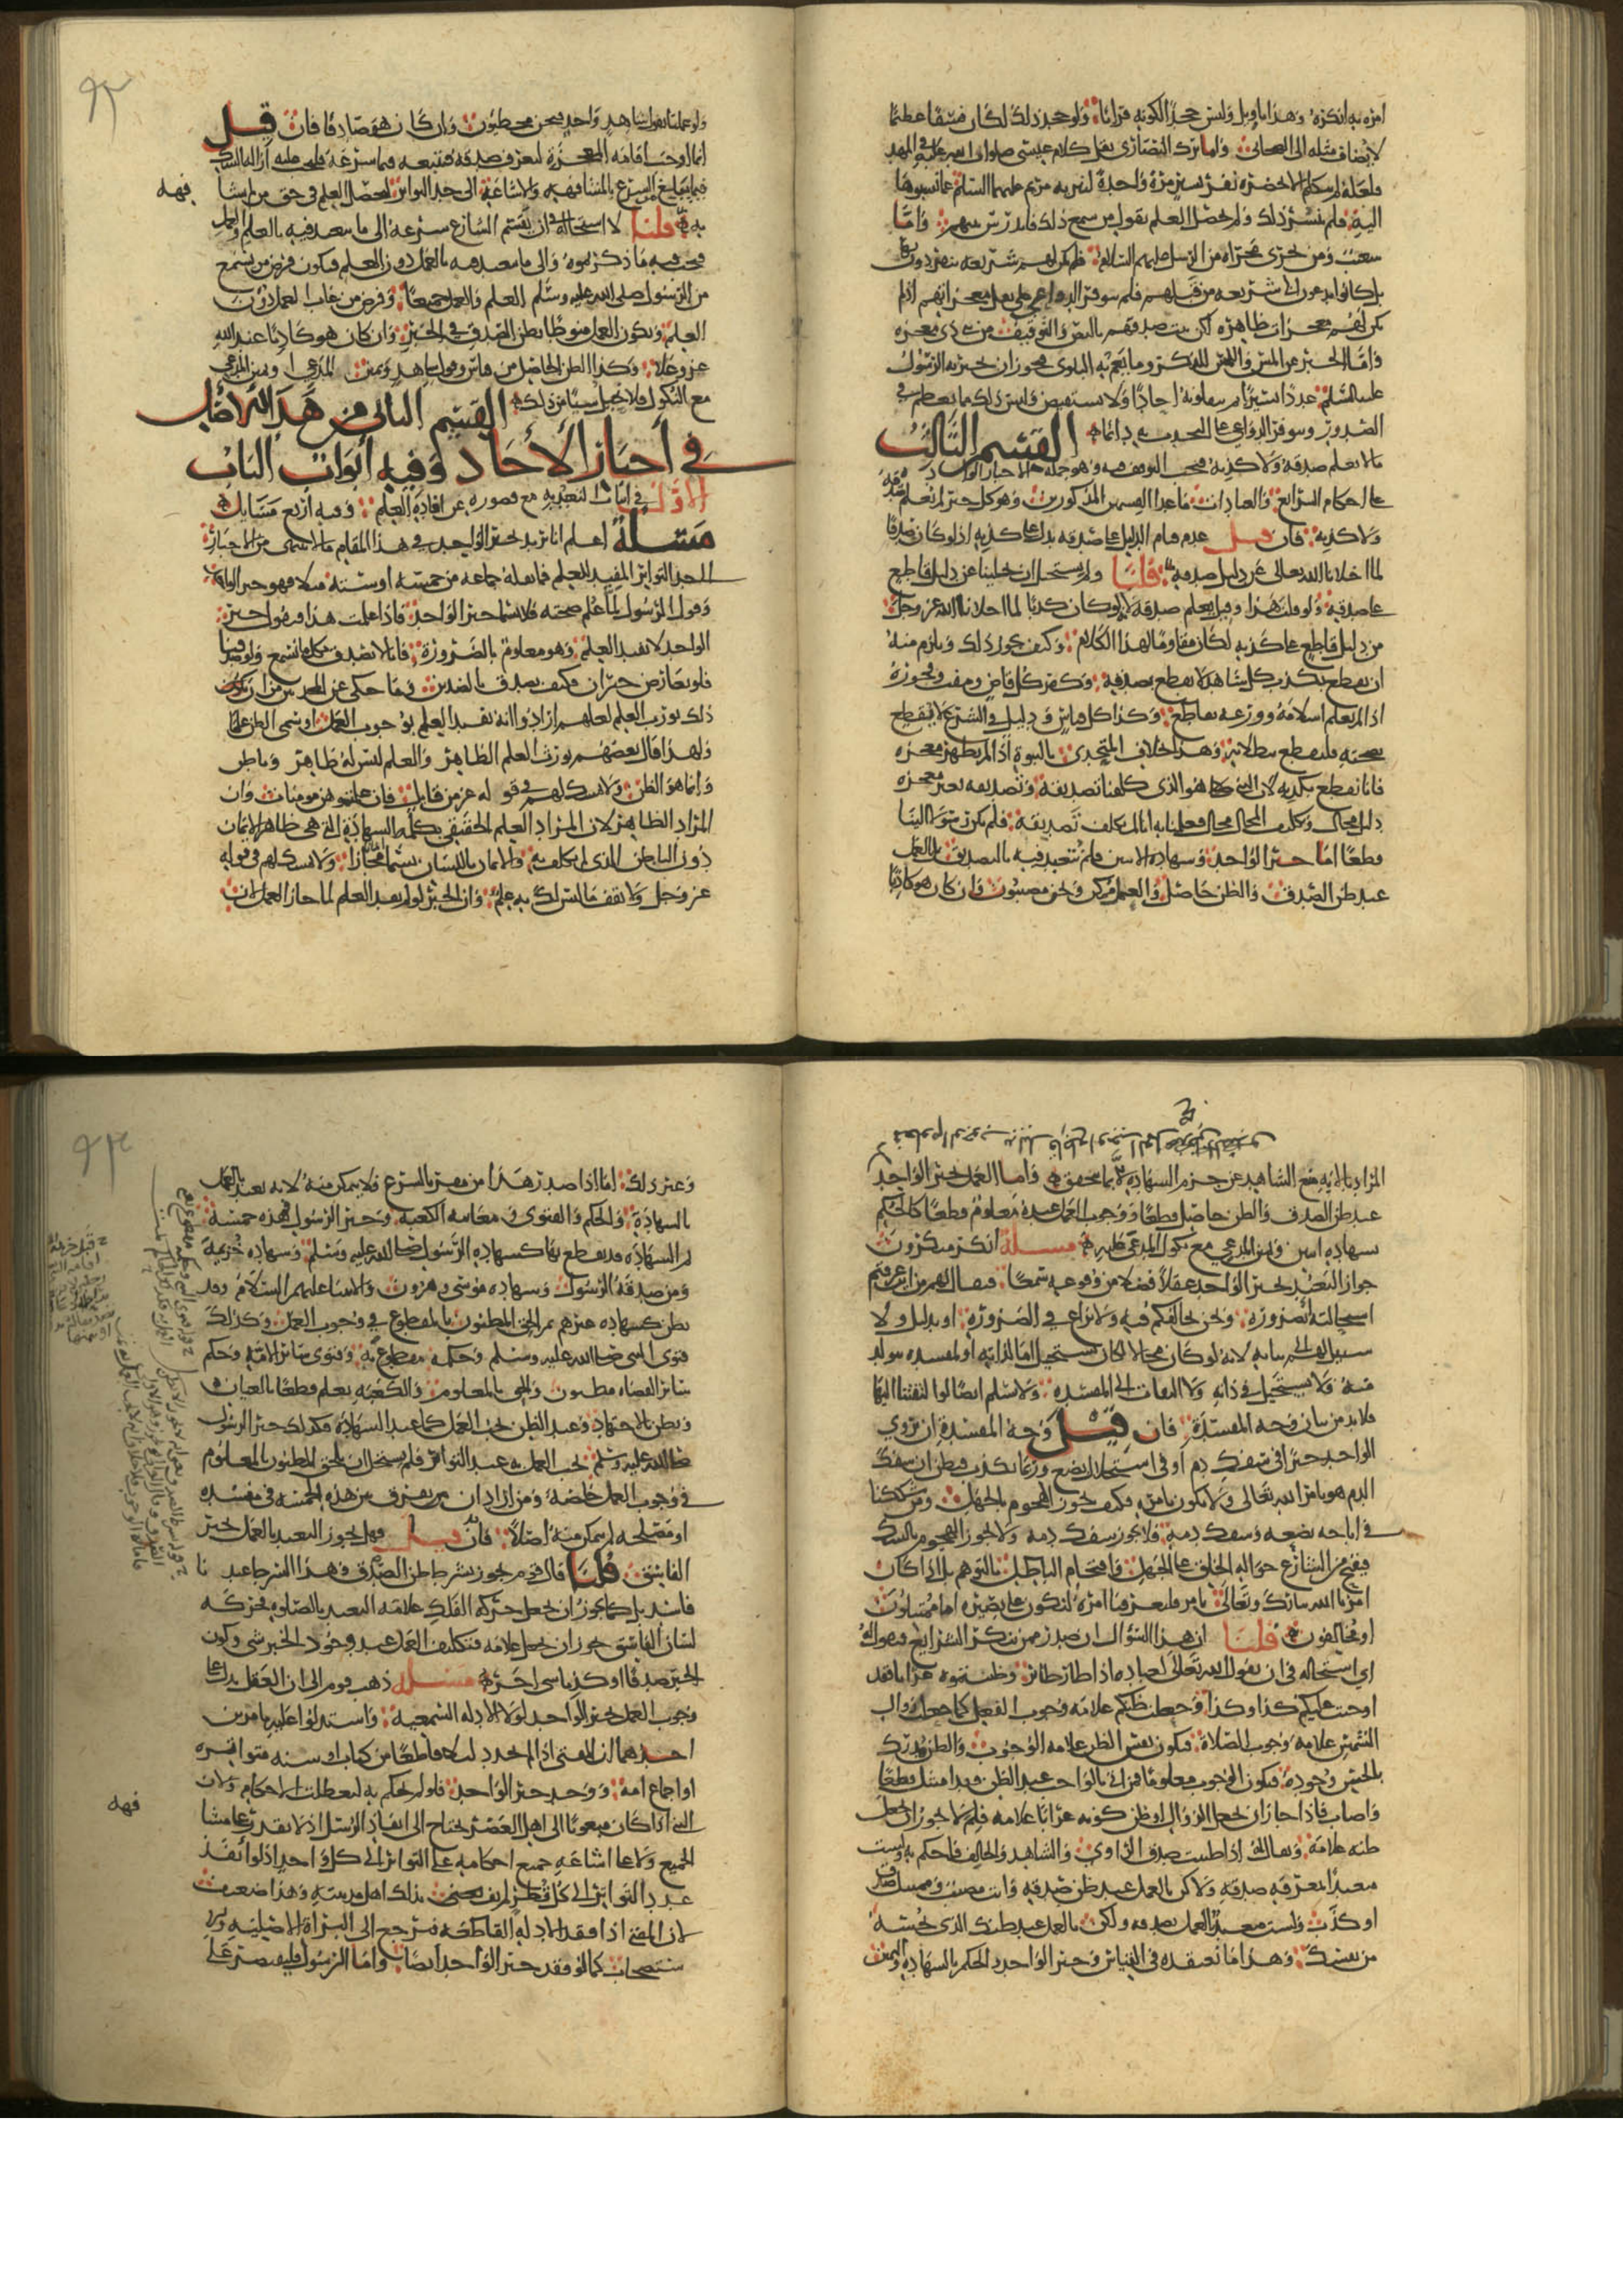 امره به انكره وهذا تاويل وليس جحدا لكونه قرانا ولو جحد ذلك لكان فسقا عظيما
لا يضاف مثله الى الصحابي واما ترك النصارى نقل كلام عيسى صلوات الله عليه في المهد
فلعله لم يتكلم الا بحضرة نفر يسير مرة واحدة لتبرية مريم عليهما السلام عما نسبوها
اليه فلم ينتشر ذلك ولم يحصل العلم بقول من سمع ذلك فاندرس بينهم واما
شعيب ومن يجري مجراه من الرسل عليهم السلام فلم يكن لهم شريعة ينفردون بها
بل كانوا يدعون الى شريعة من قبلهم فلم تتوفر الدواعي على نقل معجزاتهم اذ لم
يكن لهم معجزات ظاهرة لكن ثبت صدقهم بالنص والتوقيف من ذي معجزة
واما الخبر عن المس واللمس للذكر وما تعم به البلوى فيجوز ان يخبر به الرسول
عليه السلم عددا يسيرا ثم ينقلونه احادا ولا يستفيض وليس ذلك مما يعظم في
الصدور وتتوفر الدواعي على التحدث به دائما القسم الثالث
ما لا يعلم صدقه ولا كذبه فيجب التوقف فيه وهو جملة الاخبار الواردة
على احكام الشرايع والعبادات مما عدا القسمين المذكورين وهو كل خبر لم نعلم صدقه
ولا كذبه فان قيل عدم قيام الدليل على صدقه يدل على كذبه اذ لو كان صدقا
لما اخلانا الله تعالى عن دليل صدقه قلنا ولم يستحيل ان يخلينا عن دليل قاطع
على صدقه ولو قلب هذا وقيل يعلم صدقه لانه لو كان كذبا لما اخلانا الله عز وجل
من دليل قاطع على كذبه لكان مقاوما لهذا الكلام وكيف يجوز ذلك ويلزم منه
ان يقطع بكذب كل شاهد لا يقطع بصدقه وكفر كل قاض ومفت وفجوره
اذا لم يعلم اسلامه وورعه بقاطع وكذا كل قياس ودليل في الشرع لا يقطع
بصحته فليقطع ببطلانه وهذا بخلاف المتحدي بالنبوة اذا لم يظهر معجزة
فانا نقطع بكذبه لان النبي هو الذي كلفنا تصديقه وتصديقه بغير معجزة
دليل محال وتكليف المحال محال فعلمنا به انا لم نكلف تصديقه فلم يكن رسولا الينا
قطعا اما خبر الواحد وشهادة الاثنين فلم نتعبد فيه بالتصديق بل بالعمل
عند ظن الصدق والظن حاصل والعمل ممكن ونحن مصيبون وان كان هو كاذبا
ولو عملنا بقول شاهد واحد فنحن مخطيون وان كان هو صادقا فان قيل
انما اوجبنا اقامة المعجزة لنعرف صدقه فنتبعه فيما يشرعه فليجب عليه ازالة الشك
فيما يبلغ الشرع بالمشافهة والاشاعة الى حد التواتر ليحصل العلم في حق من لم يشافهه
به قلنا لا استحالة في ان يقسم الشارع شرعه الى ما يتعبد فيه بالعلم والعمل
فيجب فيه ما ذكرتموه والى ما يتعبد فيه بالعمل دون العلم فيكون فرض من يسمع
من الرسول صلى الله عليه وسلم العلم والعمل جميعا وفرض من غاب العمل دون
العلم ويكون العمل منوطا بظن الصدق في الخبر وان كان هو كاذبا عند الله
عز وعلا وكذا الظن الحاصل من قياس وقول شاهد ويمين المدعي او يمين المدعي
مع النكول فلا يحيل شيئا من ذلك القسم الثاني من هذا الاصل
في اخبار الاحاد وفيه ابواب الباب
الاول في اثبات التعبد به مع قصوره عن افادة العلم وفيه اربع مسايل
مسئلة اعلم انا نريد بخبر الواحد في هذا المقام ما لا ينتهي من الاخبار
الى حد التواتر المفيد للعلم فما نقله جماعة من خمسة او ستة مثلا فهو خبر الواحد
وقول الرسول مما علم صحته فلا يسما خبر الواحد فاذا علمت هذا فنقول خبر
الواحد لا يفيد العلم وهو معلوم بالضرورة فانا لا نصدق بكل ما نسمع ولو صدقنا
فلو تعارض خبران فكيف نصدق بالضدين وما حكي عن المحدثين من ان
ذلك يورث العلم لعلهم ارادوا انه يفيد العلم بوجوب العمل او سمي الظن علما
ولهذا قال بعضهم يورث العلم الظاهر والعلم ليس له ظاهر وباطن
وانما هو الظن ولا تمسك لهم في قوله عز من قايل فان علمتموهن مومنات وان
المراد الظاهر لان المراد العلم الحقيقي بكلمة الشهادة التي هي ظاهر الايمان
دون الباطن الذي لم يكلف به والايمان باللسان يسما ايمانا مجازا ولا تمسك لهم في قوله
عز وجل ولا تقف ما ليس لك به علم وان الخبر لو لم يفد العلم لما جاز العمل لان
المراد بالاية منع الشاهد عن جزم الشهادة الا بما يتحقق واما العمل بخبر الواحد
عند ظن الصدق والظن حاصل قطعا ووجوب العمل عنده معلوم قطعا كالحكم
بشهادة اثنين ويمين المدعي مع نكول المدعى عليه مسئلة انكر منكرون
جواز التعبد بخبر الواحد عقلا فضلا من وقوعه سمعا فيقال لهم من اين عرفتم
استحالته ابضرورة ونحن نخالفكم فيه ولا نزاع في الضرورة او بدليل ولا
سبيل لهم الى اثباته لانه لو كان محالا لكان يستحيل اما لذاته او لمفسدة تتولد
منه ولا يستحيل في ذاته ولا التفات الى المفسدة ولا نسلم ايضا لو التفتنا اليها
فلا بد من بيان وجه المفسدة فان قيل وجه المفسدة ان يروي
الواحد خبرا في سفك دم او في استحلال بضع وربما يكذب فيظن ان سفك
الدم هو بامر الله تعالى ولا يكون بامره فكيف يجوز الهجوم بالجهل ومن شككنا
في اباحة بضعه وسفك دمه فلا يجوز سفك دمه ولا يجوز الهجوم بالشك
فيقبح من الشارع حوالة الخلق على الجهل واقتحام الباطل بالتوهم بل اذا كان
امر الله تبارك وتعالى بامر فليعرفنا امره لنكون على بصيرة اما ممتثلون
او مخالفون قلنا ان هذا السؤال ان صدر ممن ينكر الشرايع فنقول له
اي استحالة في ان يقول الله تعالى لعباده اذا طار طائر وظننتموه غرابا فقد
اوجبت عليكم كذا وكذا وجعلت ظنكم علامة وجوب الفعل كما جعلت زوال
الشمس علامة وجوب الصلاة فيكون نفس الظن علامة الوجوب والظن مدرك
بالحس وجوده فيكون الوجوب معلوما فمن اتى بالواجب عند الظن فقد امتثل قطعا
واصاب فاذا جاز ان يجعل الزوال او ظن كونه غرابا علامة فلم لا يجوز ان يجعل
ظنه علامة ويقال له اذا ظننت صدق الراوي والشاهد والحالف فاحكم به ولست
متعبدا بمعرفة صدقه ولكن بالعمل عند ظن صدقه وانت مصيب وممتثل صدق
او كذب ولست متعبدا بالعلم بصدقه ولكن بالعمل عند ظنك الذي تحسه
من نفسك وهذا ما نعتقده في القياس وخبر الواحد والحكم بالشهادة واليمين
وغير ذلك اما اذا صدر هذا من مقر بالشرع فلا يتمكن منه لانه تعبد بالعمل
بالشهادة والحكم والفتوى ومعاينة الكعبة وخبر الرسول فهذه خمسة
ثم الشهادة قد يقطع بها كشهادة الرسول صلى الله عليه وسلم وشهادة خزيمة
ومن صدقه الرسول وشهادة موسى وهرون والانبيا عليهم السلام وقد
يظن كشهادة غيرهم ثم الحق المظنون بالمقطوع في وجوب العمل وكذلك
فتوى النبي صلى الله عليه وسلم وحكمه مقطوع به وفتوى سائر الائمة وحكم
سائر القضاة مظنون والحق بالمعلوم والكعبة يعلم قطعا بالعيان
ويظن بالاجتهاد وعند الظن يجب العمل كما عند المشاهدة فكذلك خبر الرسول
صلى الله عليه وسلم يجب العمل به عند التواتر فلم يستحيل ان يلحق المظنون بالمعلوم
في وجوب العمل خاصة ومن اراد ان يفرق بين هذه الخمسة في مفسدة
او مصلحة لم يتمكن منه اصلا فان قيل فهل يجوز التعبد بالعمل بخبر
الفاسق قلنا قال قوم يجوز بشرط ظن الصدق وهذا الشرط عندنا
فاسد بل كما يجوز ان يجعل حركة الفلك علامة التعبد بالصلوة فحركة
لسان الفاسق يجوز ان يجعل علامة فتكليف العمل عند وجود الخبر شي وكون
الخبر صدقا او كذبا شي اخر مسئلة ذهب قوم الى ان العقل يدل على
وجوب العمل بخبر الواحد دون الادلة السمعية واستدلوا عليه بامرين
احدهما ان المفتي اذا لم يجد دليلا قاطعا من كتاب او سنة متواترة
او اجماع امة ووجد خبر الواحد فلو لم يحكم به لتعطلت الاحكام ولان
النبي اذا كان مبعوثا الى اهل العصر يحتاج الى انفاذ الرسل اذ لا يقدر على مشافهة
الجميع ولا على اشاعة جميع احكامه على التواتر الى كل واحد اذ لو انفذ
عدد التواتر الى كل قطر لم يف بذلك اهل مدينته وهذا ضعيف
لان المفتي اذا فقد الادلة القاطعة يرجع الى البراة الاصلية والا
ستصحاب كما لو فقد خبر الواحد ايضا واما الرسول فليقتصر على